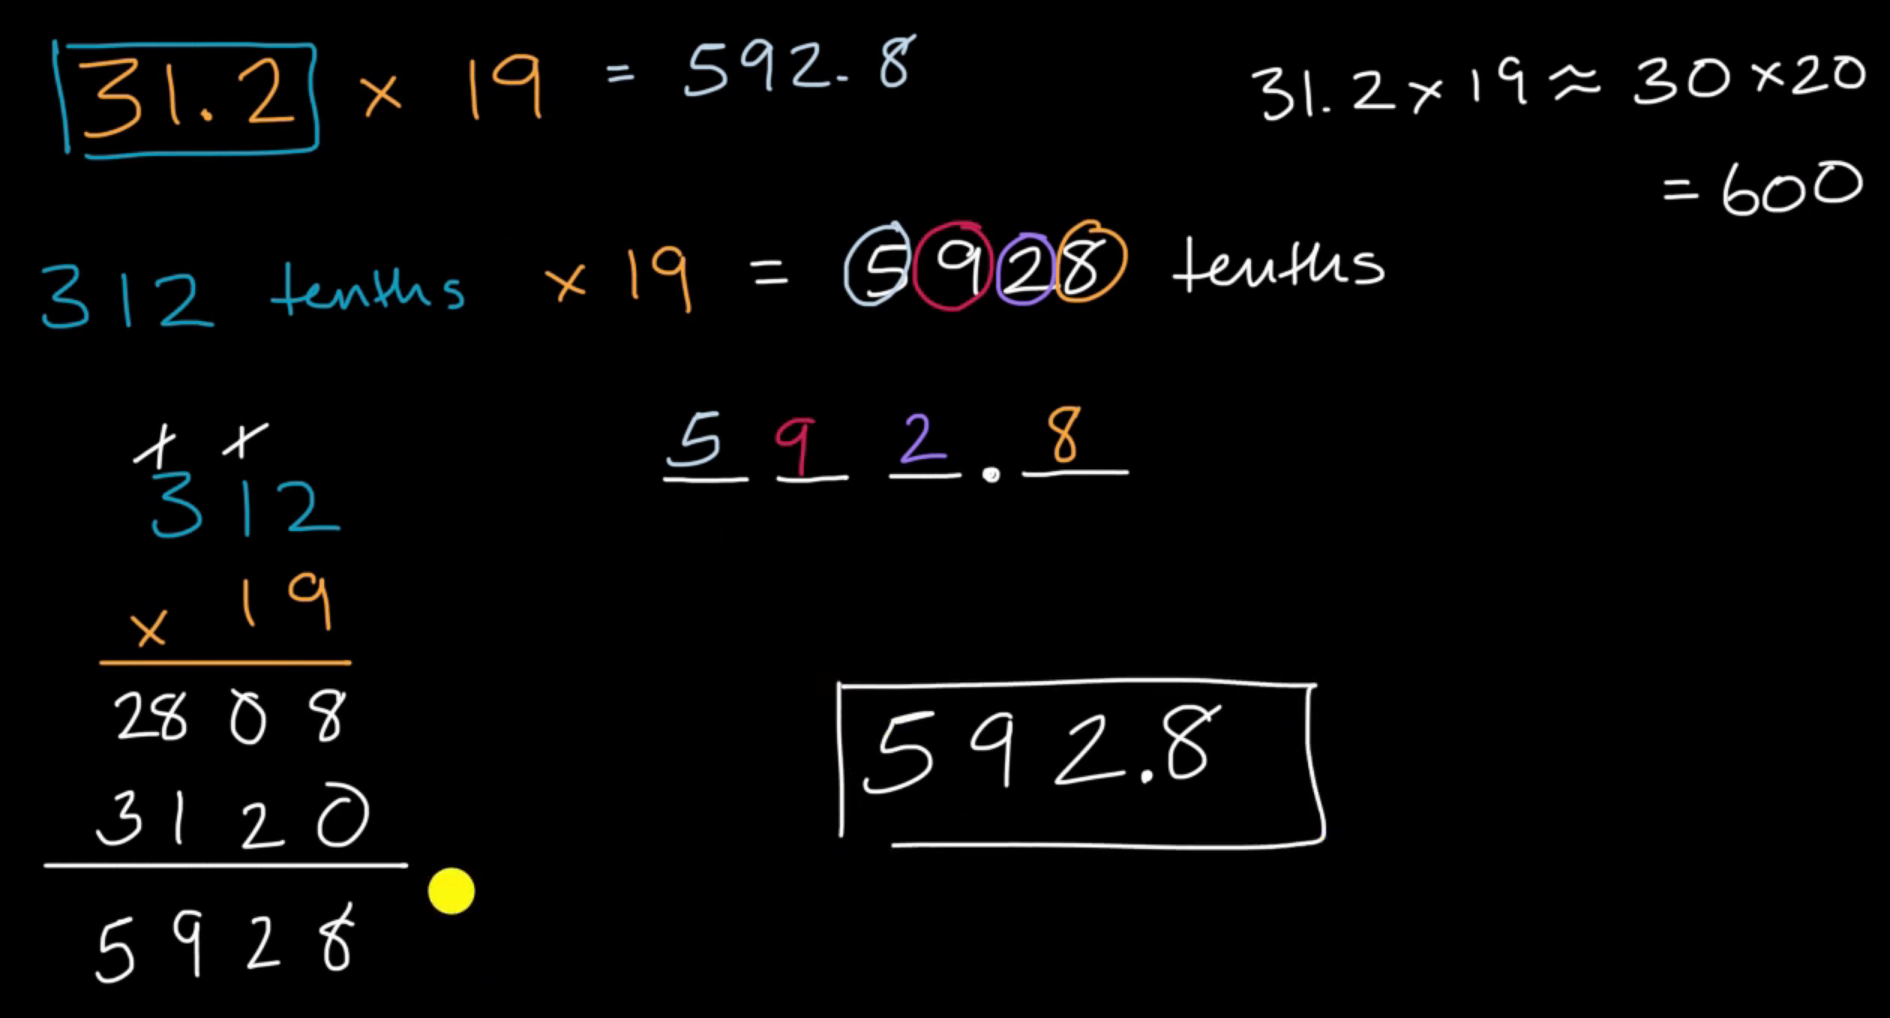 31.2 × 19 = 592.8
31.2 × 19 ≈ 30 × 20
= 600
312 tenths × 19 = 5928 tenths
5 9 2 . 8
312
× 19
2808
3120
5928
592.8